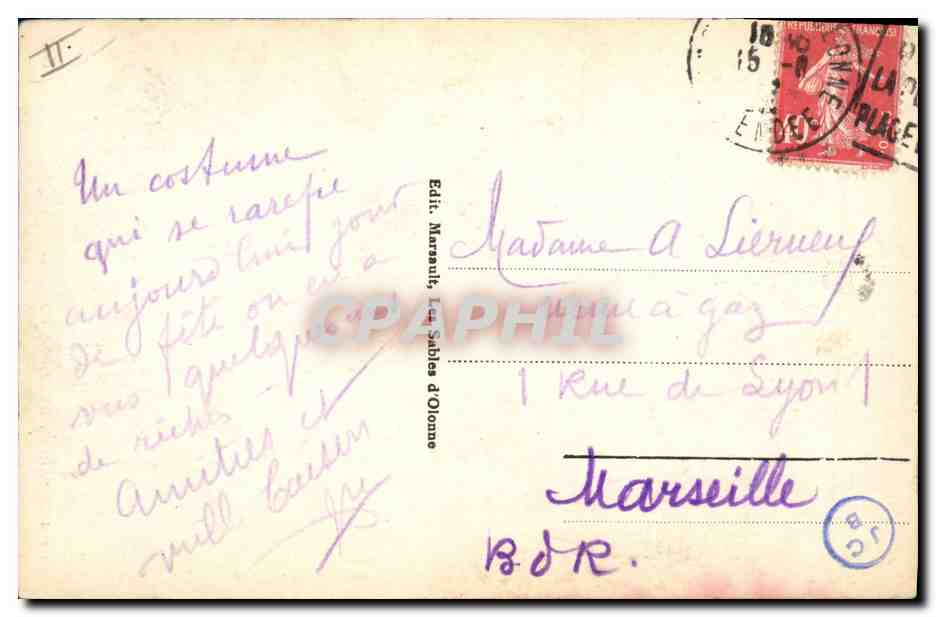 II.
Un costume
qui se rarefie
aujourd'hui jour
de fête on en a
vus quelques uns
de riches
Amities et
mill baisers
Edit. Marsault, Les Sables d'Olonne
REPUBLIQUE FRANÇAISE
10
15 -8
ONNE
ENDEE
LA
PLAGE
Madame A Lierneux
usine à gaz
1 Rue de Lyon 1
Marseille
BdR.
JCB
CPAPHIL